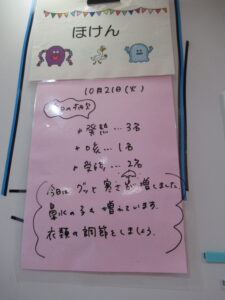 ほけん
10月21日(火)
今日の欠席
発熱…3名
咳…1名
受診…2名
今日は グッと 寒さが増しました。
鼻水の子も 増えています。
衣類の調節をしましょう。